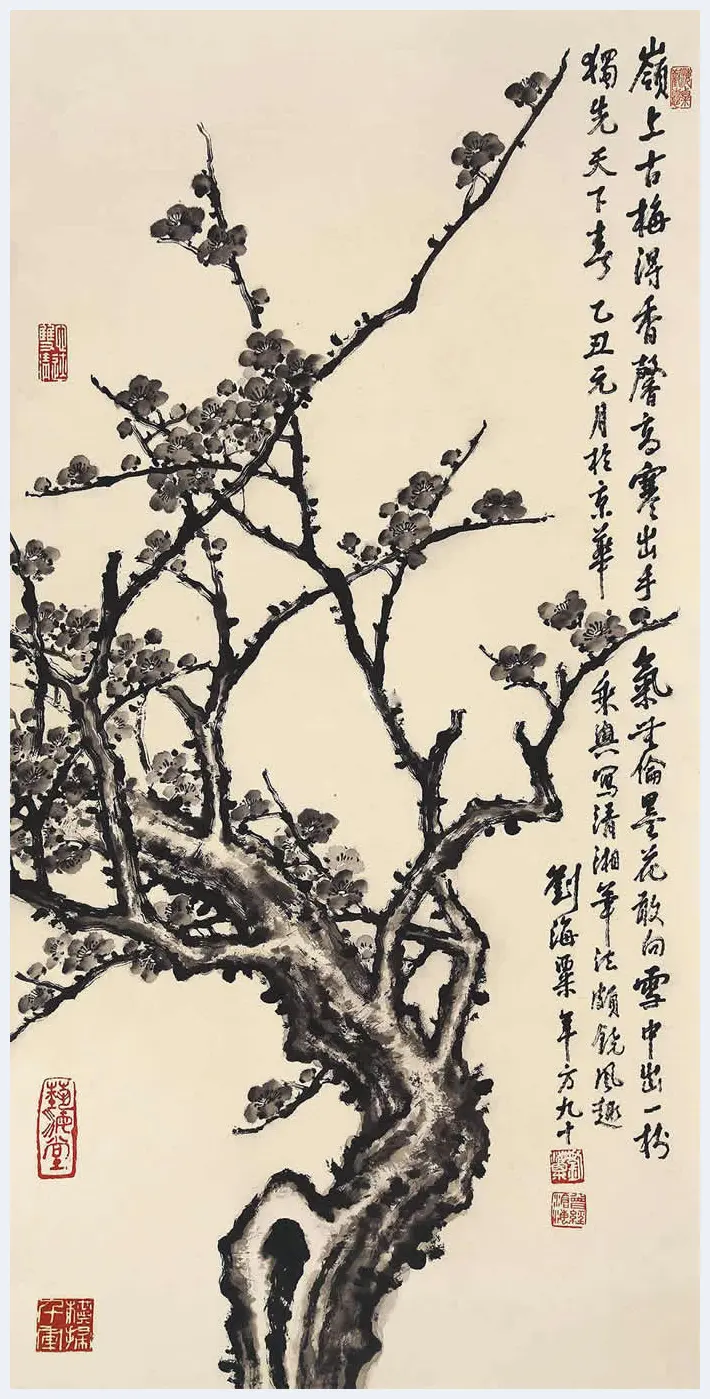 嶺上古梅得香馨高寒出手之氣無倫墨花敢向雪中出一樹
獨先天下春乙丑元月於京華乘興寫清湘筆法頗饒風趣
劉海粟年方九十
藝海堂
曾經滄海